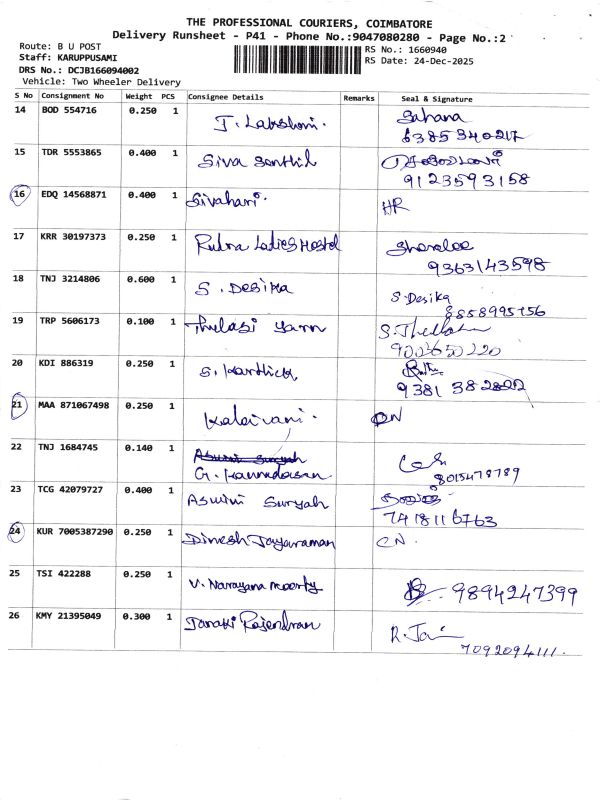 THE PROFESSIONAL COURIERS, COIMBATORE
Delivery Runsheet - P41 - Phone No.:9047080280 - Page No.:2
Route: B U POST
Staff: KARUPPUSAMI
DRS No.: DCJB166094002
Vehicle: Two Wheeler Delivery
RS No.: 1660940
RS Date: 24-Dec-2025
S No Consignment No Weight PCS Consignee Details Remarks Seal & Signature
14 BOD 554716 0.250 1 J. Lakshmi. Sahana
6385340217
15 TDR 5553865 0.400 1 Siva Senthil
9123593158
16 EDQ 14568871 0.400 1 Sivahari. HR
17 KRR 30197373 0.250 1 Rudra Ladies Hostel
9363143598
18 TNJ 3214806 0.600 1 S. Desika S. Desika
8858995756
19 TRP 5606173 0.100 1 Thulasi yarn
9003650220
20 KDI 886319 0.250 1 S. Karthick
9381 382802
21 MAA 871067498 0.250 1 Kalairani. ON
22 TNJ 1684745 0.140 1 Aswini Suryah
G. Kannadasan
8015478789
23 TCG 42079727 0.400 1 Aswini Suryah
7418116763
24 KUR 7005387290 0.250 1 Dinesh Jayaraman CN.
25 TSI 422288 0.250 1 V. Narayana moorty 9894247399
26 KMY 21395049 0.300 1 Janaki Rajendran R. Jai
7092094111.